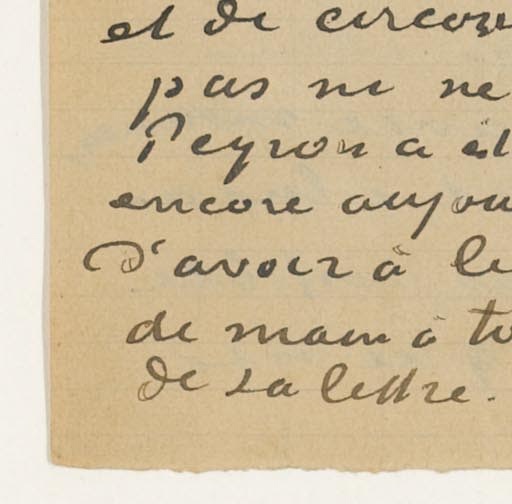 et de circon
pas ni ne
Peyron a ét
encore aujou
d'avoir à le
de main à to
de sa lettre.